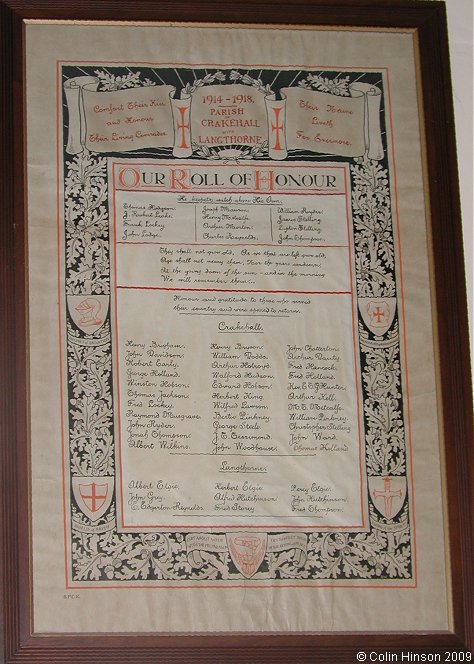 Comfort Their Kin
and Honour
Their Living Comrades.
1914-1918.
PARISH
of
CRAKEHALL
with
LANGTHORNE
Their Name
Liveth
For Evermore.
OUR ROLL OF HONOUR
He keepeth watch above His Own.
Thomas Hodgson. Joseph Mawson. William Ryder.
J. Robert Leake. Henry Metcalfe. James Stelling
Frank Lockey. Arthur Morton. Lipton Stelling.
John Lodge. Charles Reynolds. John Thompson.
They shall not grow old, As we that are left grow old,
Age shall not weary them, Nor the years condemn;
At the going down of the sun - and in the morning
We will remember them.
Honour and gratitude to those who served
their country and were spared to return.
Crakehall.
Henry Brigham. Henry Bruson. John Chatterton.
John Davidson. William Dodds. Arthur Dauty.
Robert Early. Arthur Holroyd. Fred Hancock.
George Holland. Walford Hudson. Fred Holland.
Winston Hobson. Edward Hobson. Rev. E.C.G. Hunter.
Thomas Jackson. Herbert King. Arthur Kell.
Fred Lockey. Wilfred Lawson. M.E. Metcalfe.
Raymond Musgrave. Bertie Pinkney. William Pinkney.
John Ryder. George Steele. Christopher Stelling
Jonah Thompson. J.E. John Ward.
Albert Wilkins. John Woodhouse. Thomas Holland
Langthorne.
Albert Elgie. Herbert Elgie. Percy Elgie.
John Grey. Alfred Hutchinson. John Hutchinson.
C. Edgerton-Reynolds. Fred Storey. Fred Thompson.
S.P.C.K.
© Colin Hinson 2009